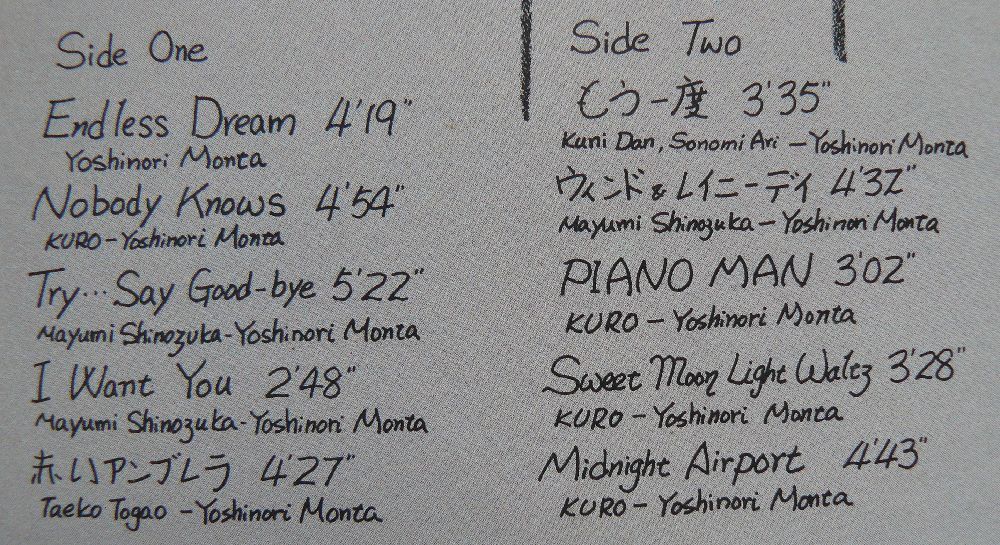 Side One
Endless Dream 4'19"
Yoshinori Monta
Nobody Knows 4'54"
KURO - Yoshinori Monta
Try… Say Good-bye 5'22"
Mayumi Shinozuka - Yoshinori Monta
I Want You 2'48"
Mayumi Shinozuka - Yoshinori Monta
赤いアンブレラ 4'27"
Taeko Togao - Yoshinori Monta
Side Two
もう一度 3'35"
Kuni Dan, Sonomi Ari - Yoshinori Monta
ウィンド&レイニーデイ 4'32"
Mayumi Shinozuka - Yoshinori Monta
PIANO MAN 3'02"
KURO - Yoshinori Monta
Sweet Moon Light Waltz 3'28"
KURO - Yoshinori Monta
Midnight Airport 4'43"
KURO - Yoshinori Monta